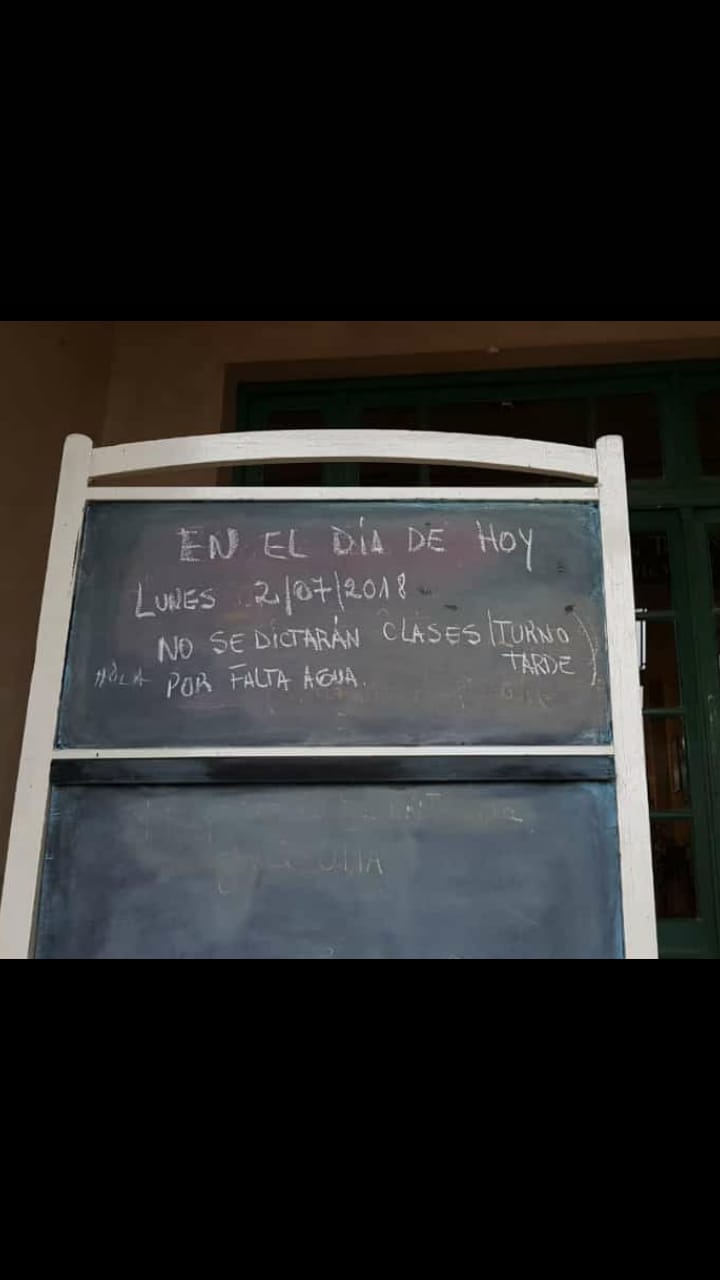 EN EL DÍA DE HOY
LUNES 2/07/2018
NO SE DICTARÁN CLASES (TURNO TARDE)
HOLA POR FALTA AGUA.